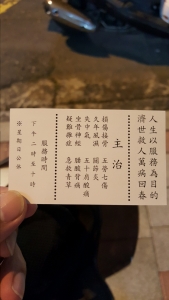 人生以服務為目的
濟世救人萬病回春
主治
損傷接骨 五勞七傷
久年風濕 關節炎
失中氣 五十肩酸痛
坐骨神經 腰酸背痛
疑難雜症 急救青草
服務時間
下午二時至十時
星期日公休